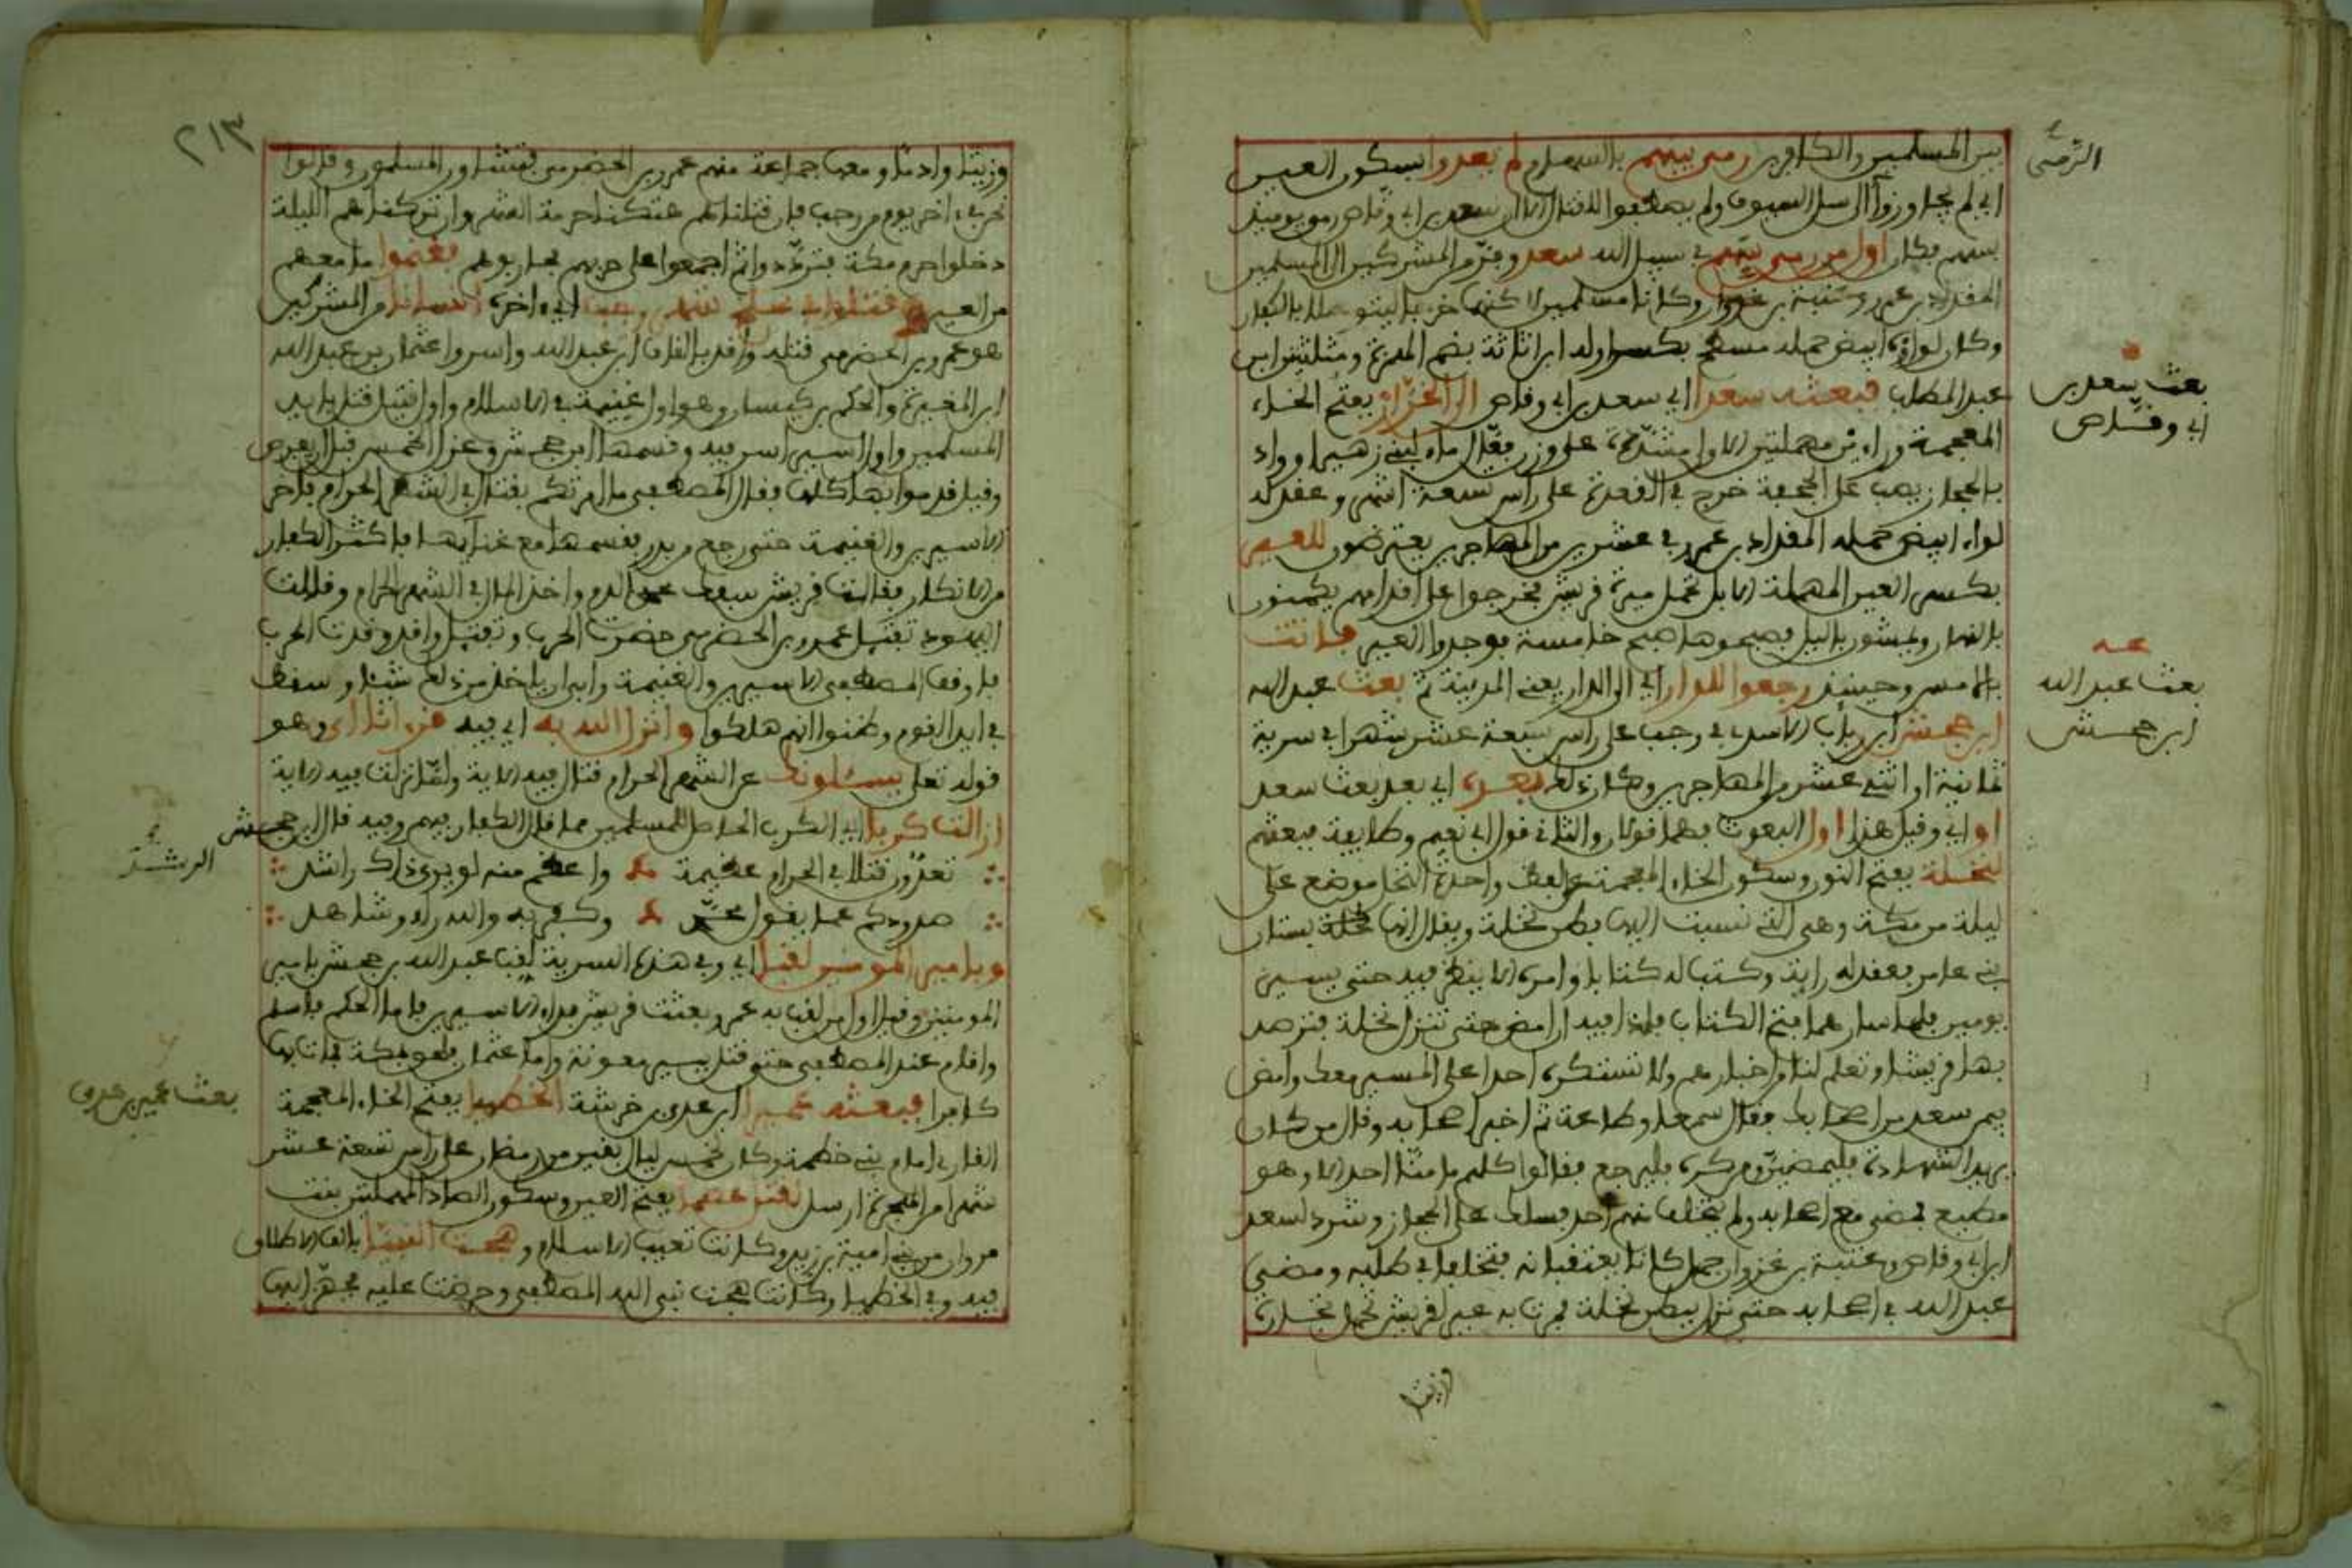 بين المسلمين والكافرين رمي بينهم بالسهام ولم يعدوا بسكون العين
اي لم يجاوزوا الى سل السيوف ولم يصطفوا للقتال الا ان سعد بن ابي وقاص رمى يومئذ
بسهم فكان اول من رمى بسهم في سبيل الله سعد وفر من المشركين الى المسلمين
المقداد بن عمرو وعتبة بن غزوان وكانا مسلمين لاكنهما خرجا ليتوصلا بالكفار
وكان لواؤه ابيض حمله مسطح بكسر اوله ابن اثاثة بضم الهمزة ومثلثتين ابن
عبد المطلب فبعثه سعدا اي سعد بن ابي وقاص الى الخرار بفتح الخاء
المعجمة وراءين مهملتين الاولى مشددة على وزن فعال ماء لبني زهير او واد
بالحجاز يصب على الجحفة خرج في القعدة على راس تسعة اشهر وعقد له
لواء ابيض حمله المقداد بن عمرو في عشرين من المهاجرين يعترضون للعير
بكسر العين المهملة الابل تحمل ميرة قريش فخرجوا على اقدامهم يكمنون
بالنهار ويمشون بالليل فصبحوها صبح خامسة فوجدوا العير فاتت
بالامس وحينئذ رجعوا للدار اي الى الدار يعني المدينة ثم بعث عبد الله
ابن جحش ابن رياب الاسدي في رجب على راس سبعة عشر شهرا في سرية
ثمانية او اثني عشر من المهاجرين وكان ذلك بعد اي بعد بعث سعد
او اي وقيل هذا اول البعوث فهما قولان والثاني قول ابي نعيم وطايفة فبعثهم
لنخلة بفتح النون وسكون الخاء المعجمة على لفظ واحدة النخل موضع على
ليلة من مكة وهي التي نسبت اليها بطن نخلة ويقال انها نخلة بستان
بني عامر فعقد له راية وكتب له كتابا وامره الا ينظر فيه حتى يسير
يومين فلما سارهما فتح الكتاب فاذا فيه ان امض حتى تنزل نخلة فترصد
بها قريشا وتعلم لنا من اخبارهم ولا تستكره احدا على المسير معك وامض
بمن سعد من اصحابك فقال سمعا وطاعة ثم اخبر اصحابه وقال من كان
يريد الشهادة فليمض ومن كره فليرجع فقالوا كلهم ما منا احد الا وهو
مطيع فمضى مع اصحابه ولم يتخلف منهم احد فسلك على الحجاز وشرد لسعد
ابن ابي وقاص وعتبة بن غزوان جمل كانا يعتقبانه فتخلفا في طلبه ومضى
عبد الله في اصحابه حتى نزل ببطن نخلة فمرت به عير لقريش تحمل تجارة
وزبيبا
الرمي
بعث سعد بن
ابي وقاص
عـه
بعث عبد الله
ابن جحش
٢١٣
وزبيبا وادما ومعها جماعة منهم عمرو بن الحضرمي فتشاور المسلمون وقالوا
نحن في اخر يوم من رجب فان قتلناهم هتكنا حرمة الشهر وان تركناهم الليلة
دخلوا حرم مكة فترددوا ثم اجمعوا على حربهم فحاربوهم فغنموا ما معهم
من العير وقتلوا في سلخ شهر رجب اي اخره انسانا من المشركين
هو عمرو بن الحضرمي قتله واقد بالقاف ابن عبد الله واسروا عثمان بن عبد الله
ابن المغيرة والحكم بن كيسان وهو اول غنيمة في الاسلام واول قتيل قتل بايدي
المسلمين واول اسير اسر فيه وقسمها ابن جحش وعزل الخمس قبل ان يفرض
وقيل قدموا بها كلها فقال المصطفى ما امرتكم بقتال في الشهر الحرام فاخر
الاسيرين والغنيمة حتى رجع من بدر فقسمها مع غنائمها فاكثر الكفار
من الانكار فقالت قريش سفك محمد الدم واخذ المال في الشهر الحرام وقالت
اليهود تفتيل عمرو بن الحضرمي حضرت الحرب وتقتيل واقد وقدت الحرب
فاوقف المصطفى الاسيرين والغنيمة وابى ان ياخذ من ذلك شيئا وسقط
في ايدي القوم وظنوا انهم هلكوا وانزل الله به اي فيه قرءانا اي وهو
قوله تعالى يسئلونك عن الشهر الحرام قتال فيه الاية ولما نزلت فيه الاية
ازالت كربا اي الكرب الحاصل للمسلمين مما قال الكفار فيهم وفيه قال ابن جحش
تعدون قتلا في الحرام عظيمة واعظم منه لو يرى ذاك راشد
صدودكم عما يقول محمد وكفر به والله راء وشاهد
وبامير المومنين لقبا اي وفي هذه السرية لقب عبد الله بن جحش بامير
المومنين وقيل اول من لقب به عمر وبعثت قريش بفداء الاسيرين فاما الحكم فاسلم
واقام عند المصطفى حتى قتل ببير معونة واما عثمان فلحق بمكة فمات بها
كافرا فبعثه عميرا ابن عدي بن خرشة الخطميا بفتح الخاء المعجمة
القاري امام بني خطمة وكان لخمس ليال بقين من رمضان على راس تسعة عشر
شهرا من الهجرة ارسل لقتل عصما بفتح العين وسكون الصاد المهملتين بنت
مروان من بني امية بن زيد وكانت تعيب الاسلام وهجت النبيا بالف الاطلاق
فيه وفي الخطميا وكانت هجت نبي الله المصطفى وحرضت عليه فجهز اليها
الرشد
بعث عمير بن عدي